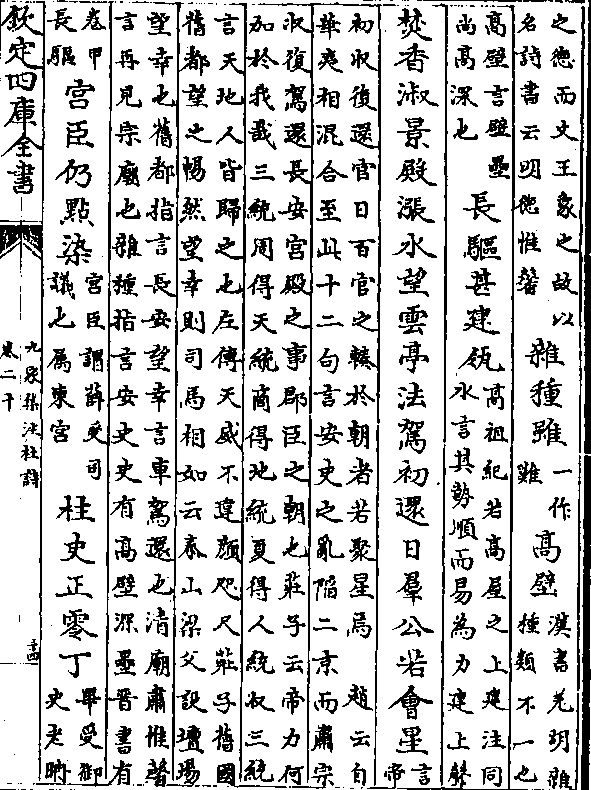 之德而文王象之故以
名詩書云明德惟馨
雜種雖
一作
難
高壁
漢書羌明雜
種類不一也
高壁言壁壘
尚高深也
長驅甚建瓴
高祖紀若高屋之上建注同
水言其勢順而易為力建上聲
焚香淑景殿漲水望雲亭法駕初還日羣公若會星
言
帝
初收復還官日百官之輳於朝者若聚星焉　趙云自
華夷相混合至此十二句言安史之亂陷二京而肅宗
收復駕還長安宮殿之事郡臣之朝也莊子云帝力何
加於我哉三統周得天統商得地統夏得人統叙三統
言天地人皆歸之也左傳天威不違顏咫尺莊子舊國
舊都望之暢然望幸則司馬相如云泰山梁父設壇場
望幸也舊都指言長安望幸言車駕還也清廟肅惟馨
言再見宗廟也雜種指言安史史有高壁深壘晉書有
卷甲
長驅
宮臣仍點染
宮臣謂薛受司
議也屬東宮
柱史正零丁
畢受御
史老聃
欽定四庫全書
九家集注杜詩
卷二十